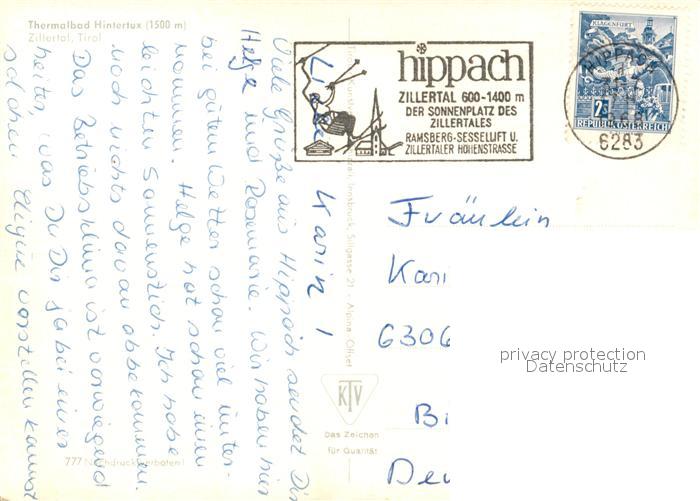 Thermalbad Hintertux (1500 m)
Zillertal, Tirol
hippach
ZILLERTAL 600-1400 m
DER SONNENPLATZ DES
ZILLERTALES
RAMSBERG-SESSELLIFT U.
ZILLERTALER HÖHENSTRASSE
KLAGENFURT
HIPPACH
6283
REPUBLIK ÖSTERREICH
Liebe Karin!
Viele Grüße aus Hippach sendet Dir
Helge und Rosemarie. Wir haben hier
bei gutem Wetter schon viel unter-
nommen. Helge hat schon einen
leichten Sonnenstich. Ich habe
noch nichts davon abbekommen.
Das Betriebsklima ist vorwiegend
heiter, was Du Dir ja bei einer
solchen Clique vorstellen kannst
Innsbruck, Sillgasse 21 · Alpina Offset
KTV
Das Zeichen
für Qualität
777 Nachdruck verboten!
Fräulein
Kari
6306
Bi
Deu
privacy protection
Datenschutz